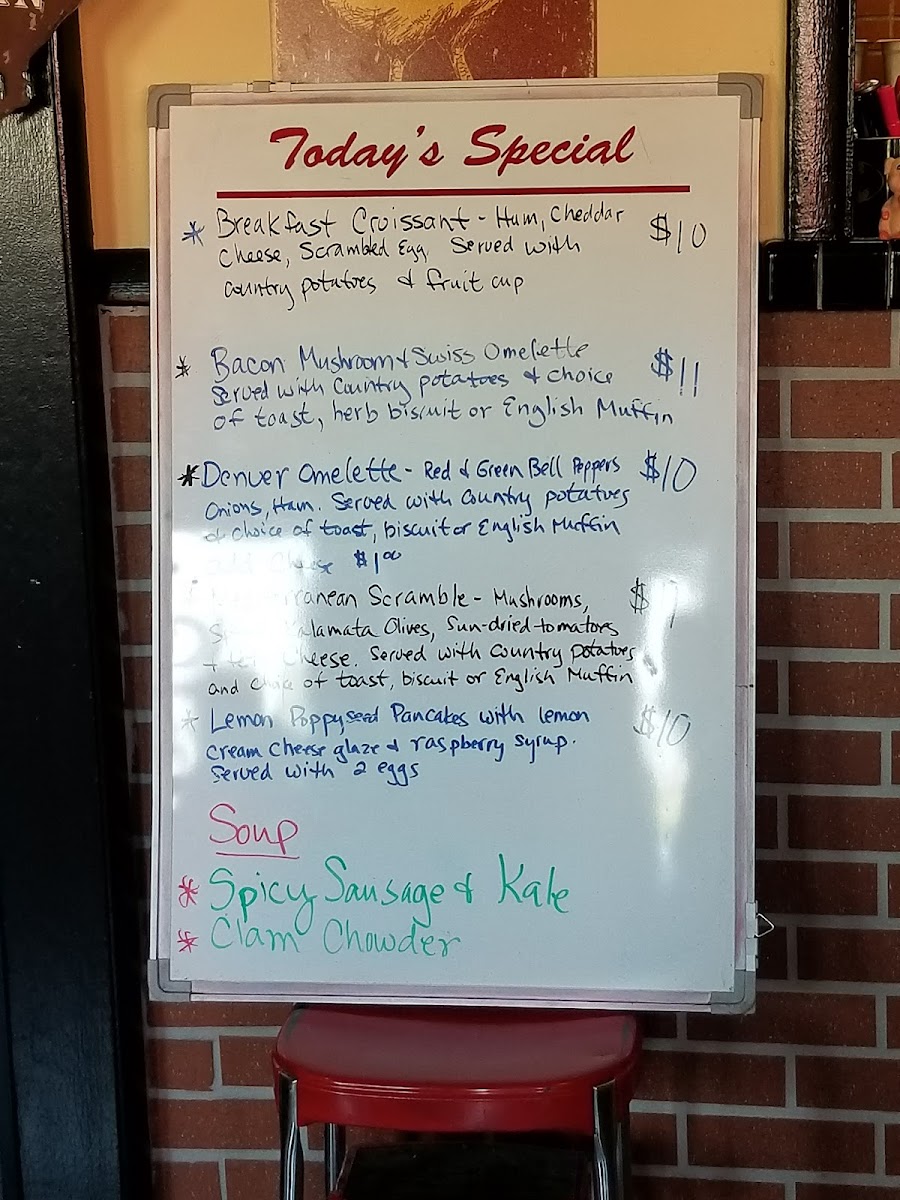 Today's Special
* Breakfast Croissant - Ham, Cheddar $10
Cheese, Scrambled Egg. Served with
Country potatoes & fruit cup
* Bacon Mushroom & Swiss Omelette $11
Served with Country potatoes & choice
of toast, herb biscuit or English Muffin
* Denver Omelette - Red & Green Bell Peppers $10
Onions, Ham. Served with Country potatoes
& choice of toast, biscuit or English Muffin
Cheese $1.00
Scramble - Mushrooms,
Kalamata Olives, Sun-dried tomatoes
Cheese. Served with Country potatoes
and choice of toast, biscuit or English Muffin
* Lemon Poppyseed Pancakes with lemon $10
cream cheese glaze & raspberry syrup.
Served with 2 eggs
Soup
* Spicy Sausage & Kale
* Clam Chowder